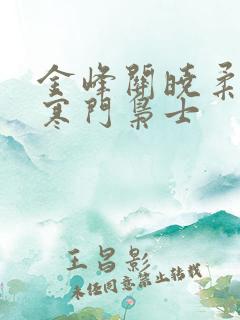 金峰關曉柔
寒門梟士
王昌影
未经同意禁止转载